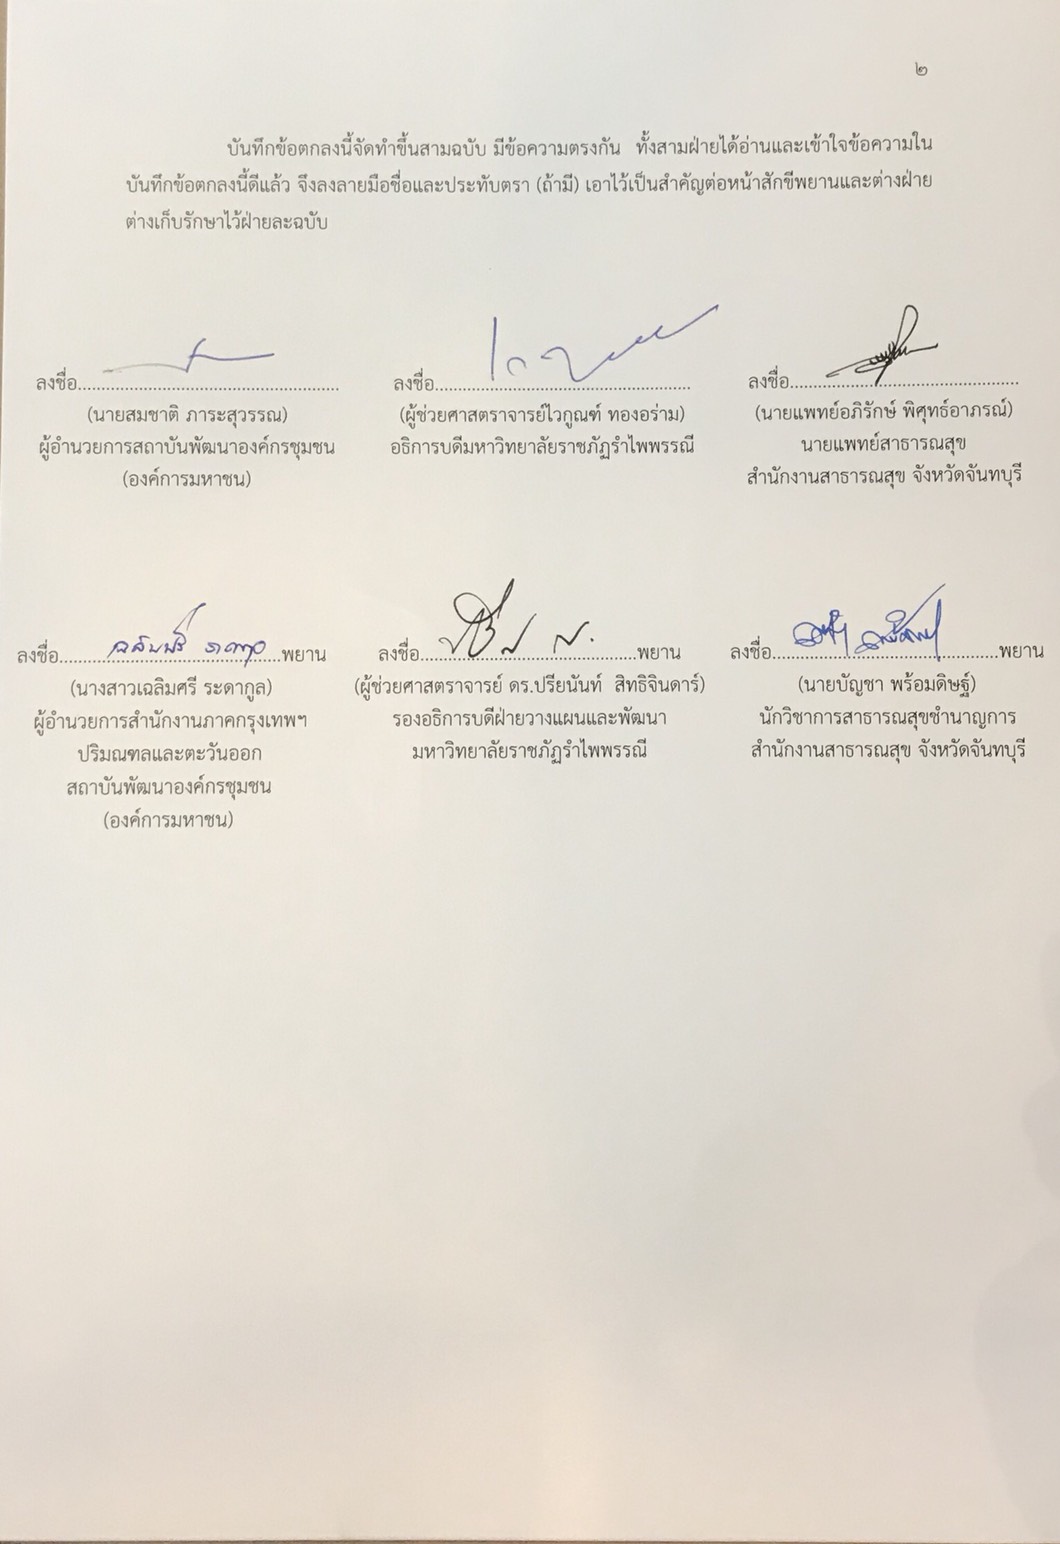 ๒
บันทึกข้อตกลงนี้จัดทำขึ้นสามฉบับ มีข้อความตรงกัน ทั้งสามฝ่ายได้อ่านและเข้าใจข้อความใน
บันทึกข้อตกลงนี้ดีแล้ว จึงลงลายมือชื่อและประทับตรา (ถ้ามี) เอาไว้เป็นสำคัญต่อหน้าสักขีพยานและต่างฝ่าย
ต่างเก็บรักษาไว้ฝ่ายละฉบับ
ลงชื่อ........................................................
(นายสมชาติ ภาระสุวรรณ)
ผู้อำนวยการสถาบันพัฒนาองค์กรชุมชน
(องค์การมหาชน)
ลงชื่อ........................................................
(ผู้ช่วยศาสตราจารย์ไวกูณฑ์ ทองอร่าม)
อธิการบดีมหาวิทยาลัยราชภัฏรำไพพรรณี
ลงชื่อ..................................................
(นายแพทย์อภิรักษ์ พิศุทธ์อาภรณ์)
นายแพทย์สาธารณสุข
สำนักงานสาธารณสุข จังหวัดจันทบุรี
ลงชื่อ................................................พยาน
(นางสาวเฉลิมศรี ระดากูล)
ผู้อำนวยการสำนักงานภาคกรุงเทพฯ
ปริมณฑลและตะวันออก
สถาบันพัฒนาองค์กรชุมชน
(องค์การมหาชน)
ลงชื่อ................................................พยาน
(ผู้ช่วยศาสตราจารย์ ดร.ปรียนันท์ สิทธิจินดาร์)
รองอธิการบดีฝ่ายวางแผนและพัฒนา
มหาวิทยาลัยราชภัฏรำไพพรรณี
ลงชื่อ................................................พยาน
(นายบัญชา พร้อมดิษฐ์)
นักวิชาการสาธารณสุขชำนาญการ
สำนักงานสาธารณสุข จังหวัดจันทบุรี